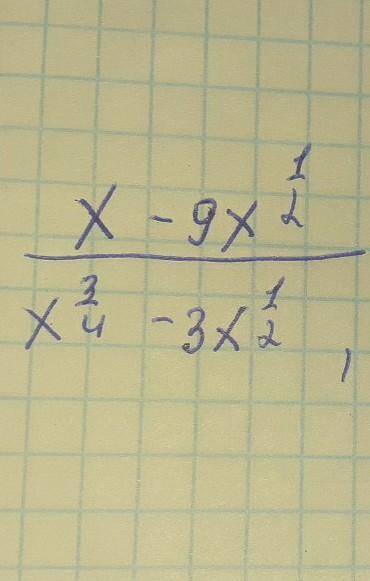 x - 9x^{1/2}
x^{3/4} - 3x^{1/2} ,